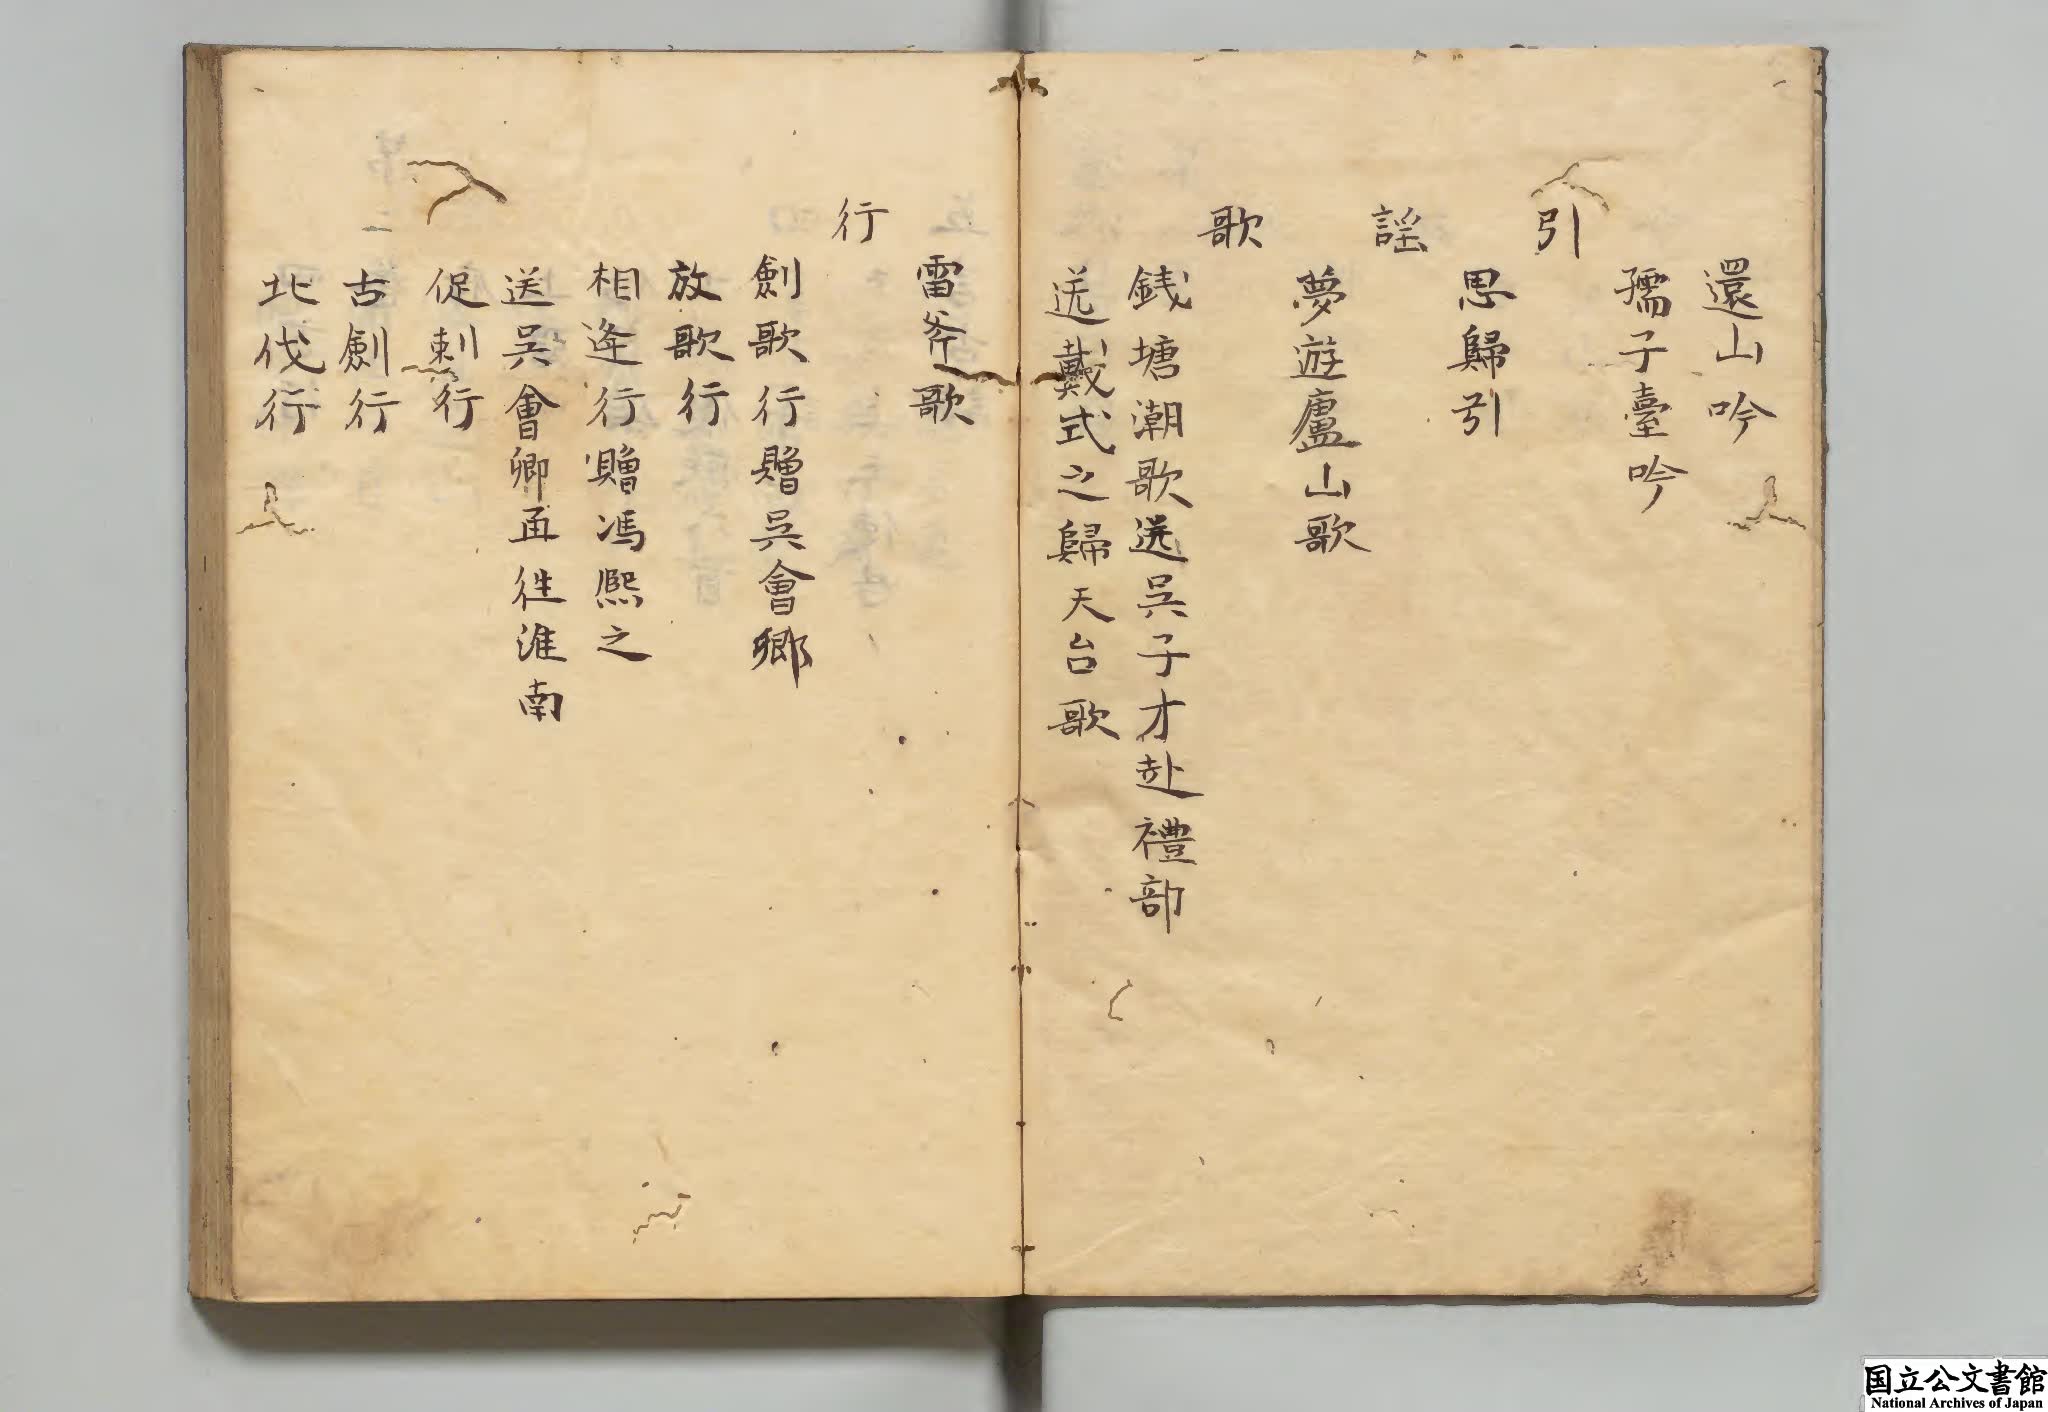 還山吟
孺子臺吟
引
思歸引
謡
夢遊廬山歌
歌
銭塘潮歌送吳子才赴禮部
送戴式之歸天台歌
雷斧歌
行
劍歌行贈吳會卿
放歌行
相逢行贈馮熙之
送吳會卿再徃淮南
促刺行
古劍行
北伐行
国立公文書館
National Archives of Japan